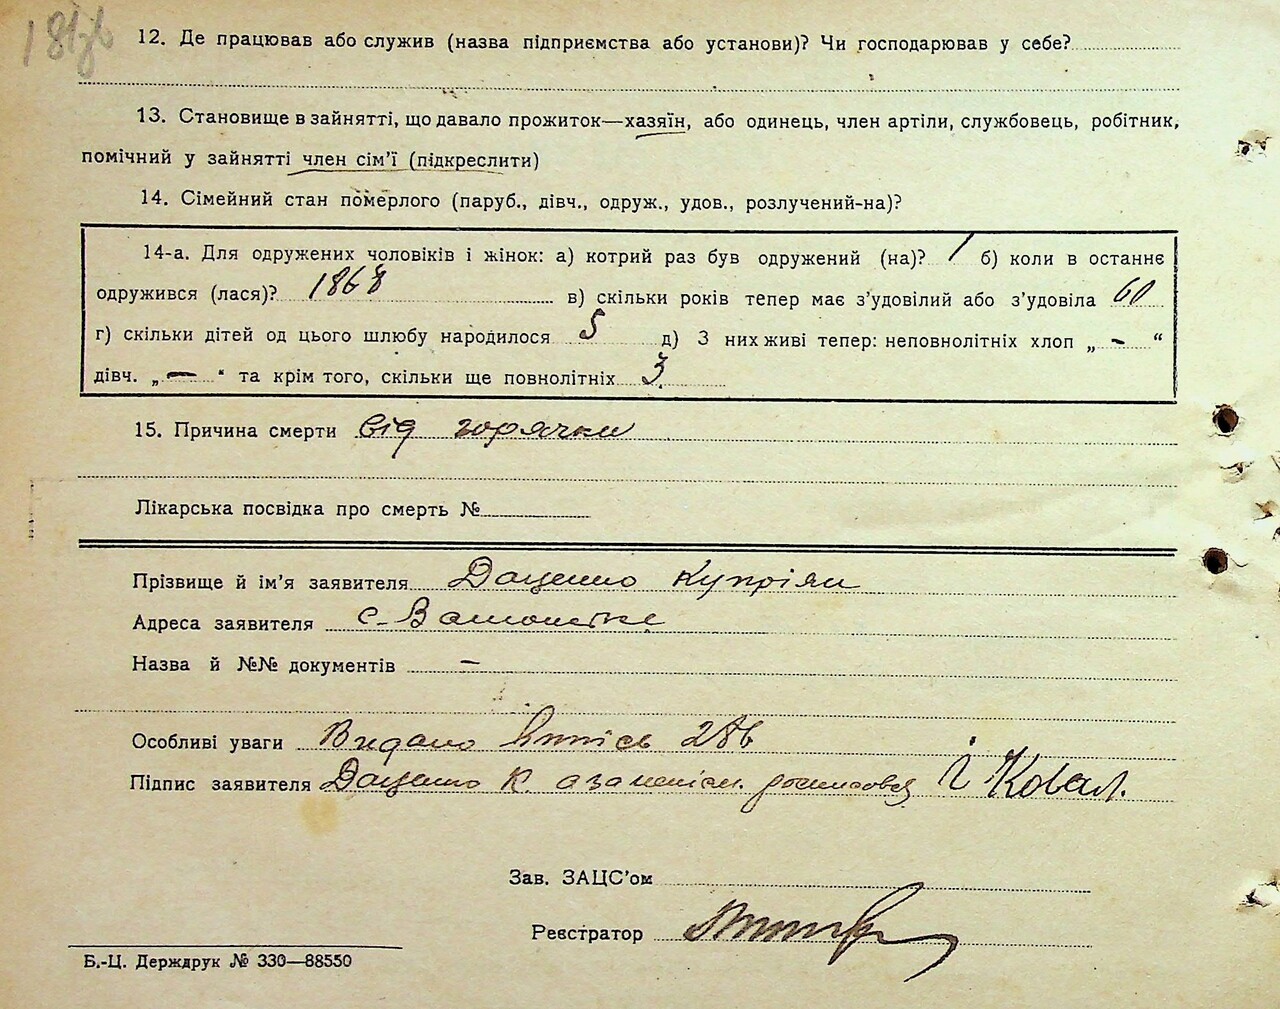 12. Де працював або служив (назва підприємства або установи)? Чи господарював у себе?
13. Становище в зайнятті, що давало прожиток—хазяїн, або одинець, член артіли, службовець, робітник,
помічний у зайнятті член сім'ї (підкреслити)
14. Сімейний стан померлого (паруб., дівч., одруж., удов., розлучений-на)?
14-а. Для одружених чоловіків і жінок: а) котрий раз був одружений (на)? 1 б) коли в останнє
одружився (лася)? 1868 в) скільки років тепер має з'удовілий або з'удовіла 60
г) скільки дітей од цього шлюбу народилося 5 д) З них живі тепер: неповнолітніх хлоп „ - “
дівч. „ — “ та крім того, скільки ще повнолітніх 3
15. Причина смерти від горячки
Лікарська посвідка про смерть №
Прізвище й ім'я заявителя Даценко Купріян
Адреса заявителя с.
Назва й №№ документів —
Особливі уваги Видано
Підпис заявителя Даценко К. а за негр. росписовся І Ковал.
Зав. ЗАЦС'ом
Реєстратор
Б.-Ц. Держдрук № 330—88550